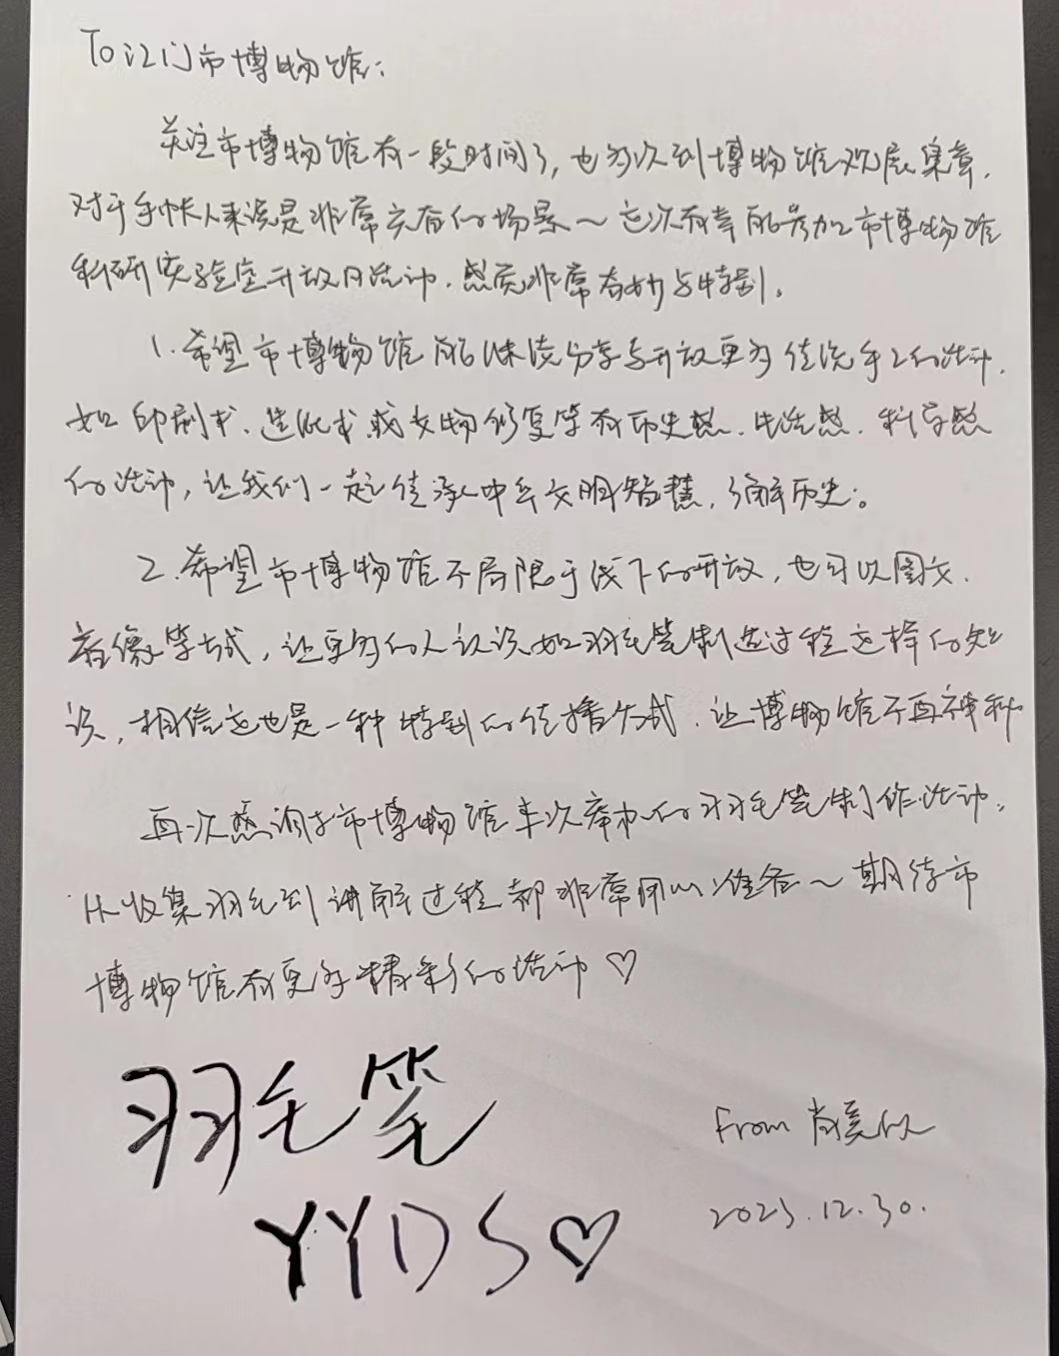 To 江门市博物馆：
关注市博物馆有一段时间了，也多次到博物馆观展集章，
对于手帐人来说是非常充有的场景～这次有幸能参加市博物馆
科研实验室开放日活动，感觉非常奇妙与特别。
1.希望市博物馆能继续分享与开放更多传统手工的活动，
如印刷术、造纸术或文物修复等有历史感、生活感、科学感
的活动，让我们一起传承中华文明智慧，了解历史。
2.希望市博物馆不局限于线下的开放，也可以图文、
音像等方式，让更多的人认识如羽毛笔制造过程这样的知
识，相信这也是一种特别的传播方式，让博物馆不再神秘
再次感谢市博物馆本次举办的羽毛笔制作活动，
从收集羽毛到讲解过程都非常用心准备～期待市
博物馆有更多精彩的活动♡
羽毛笔
YYDS♡
From 尚美
2023.12.30.